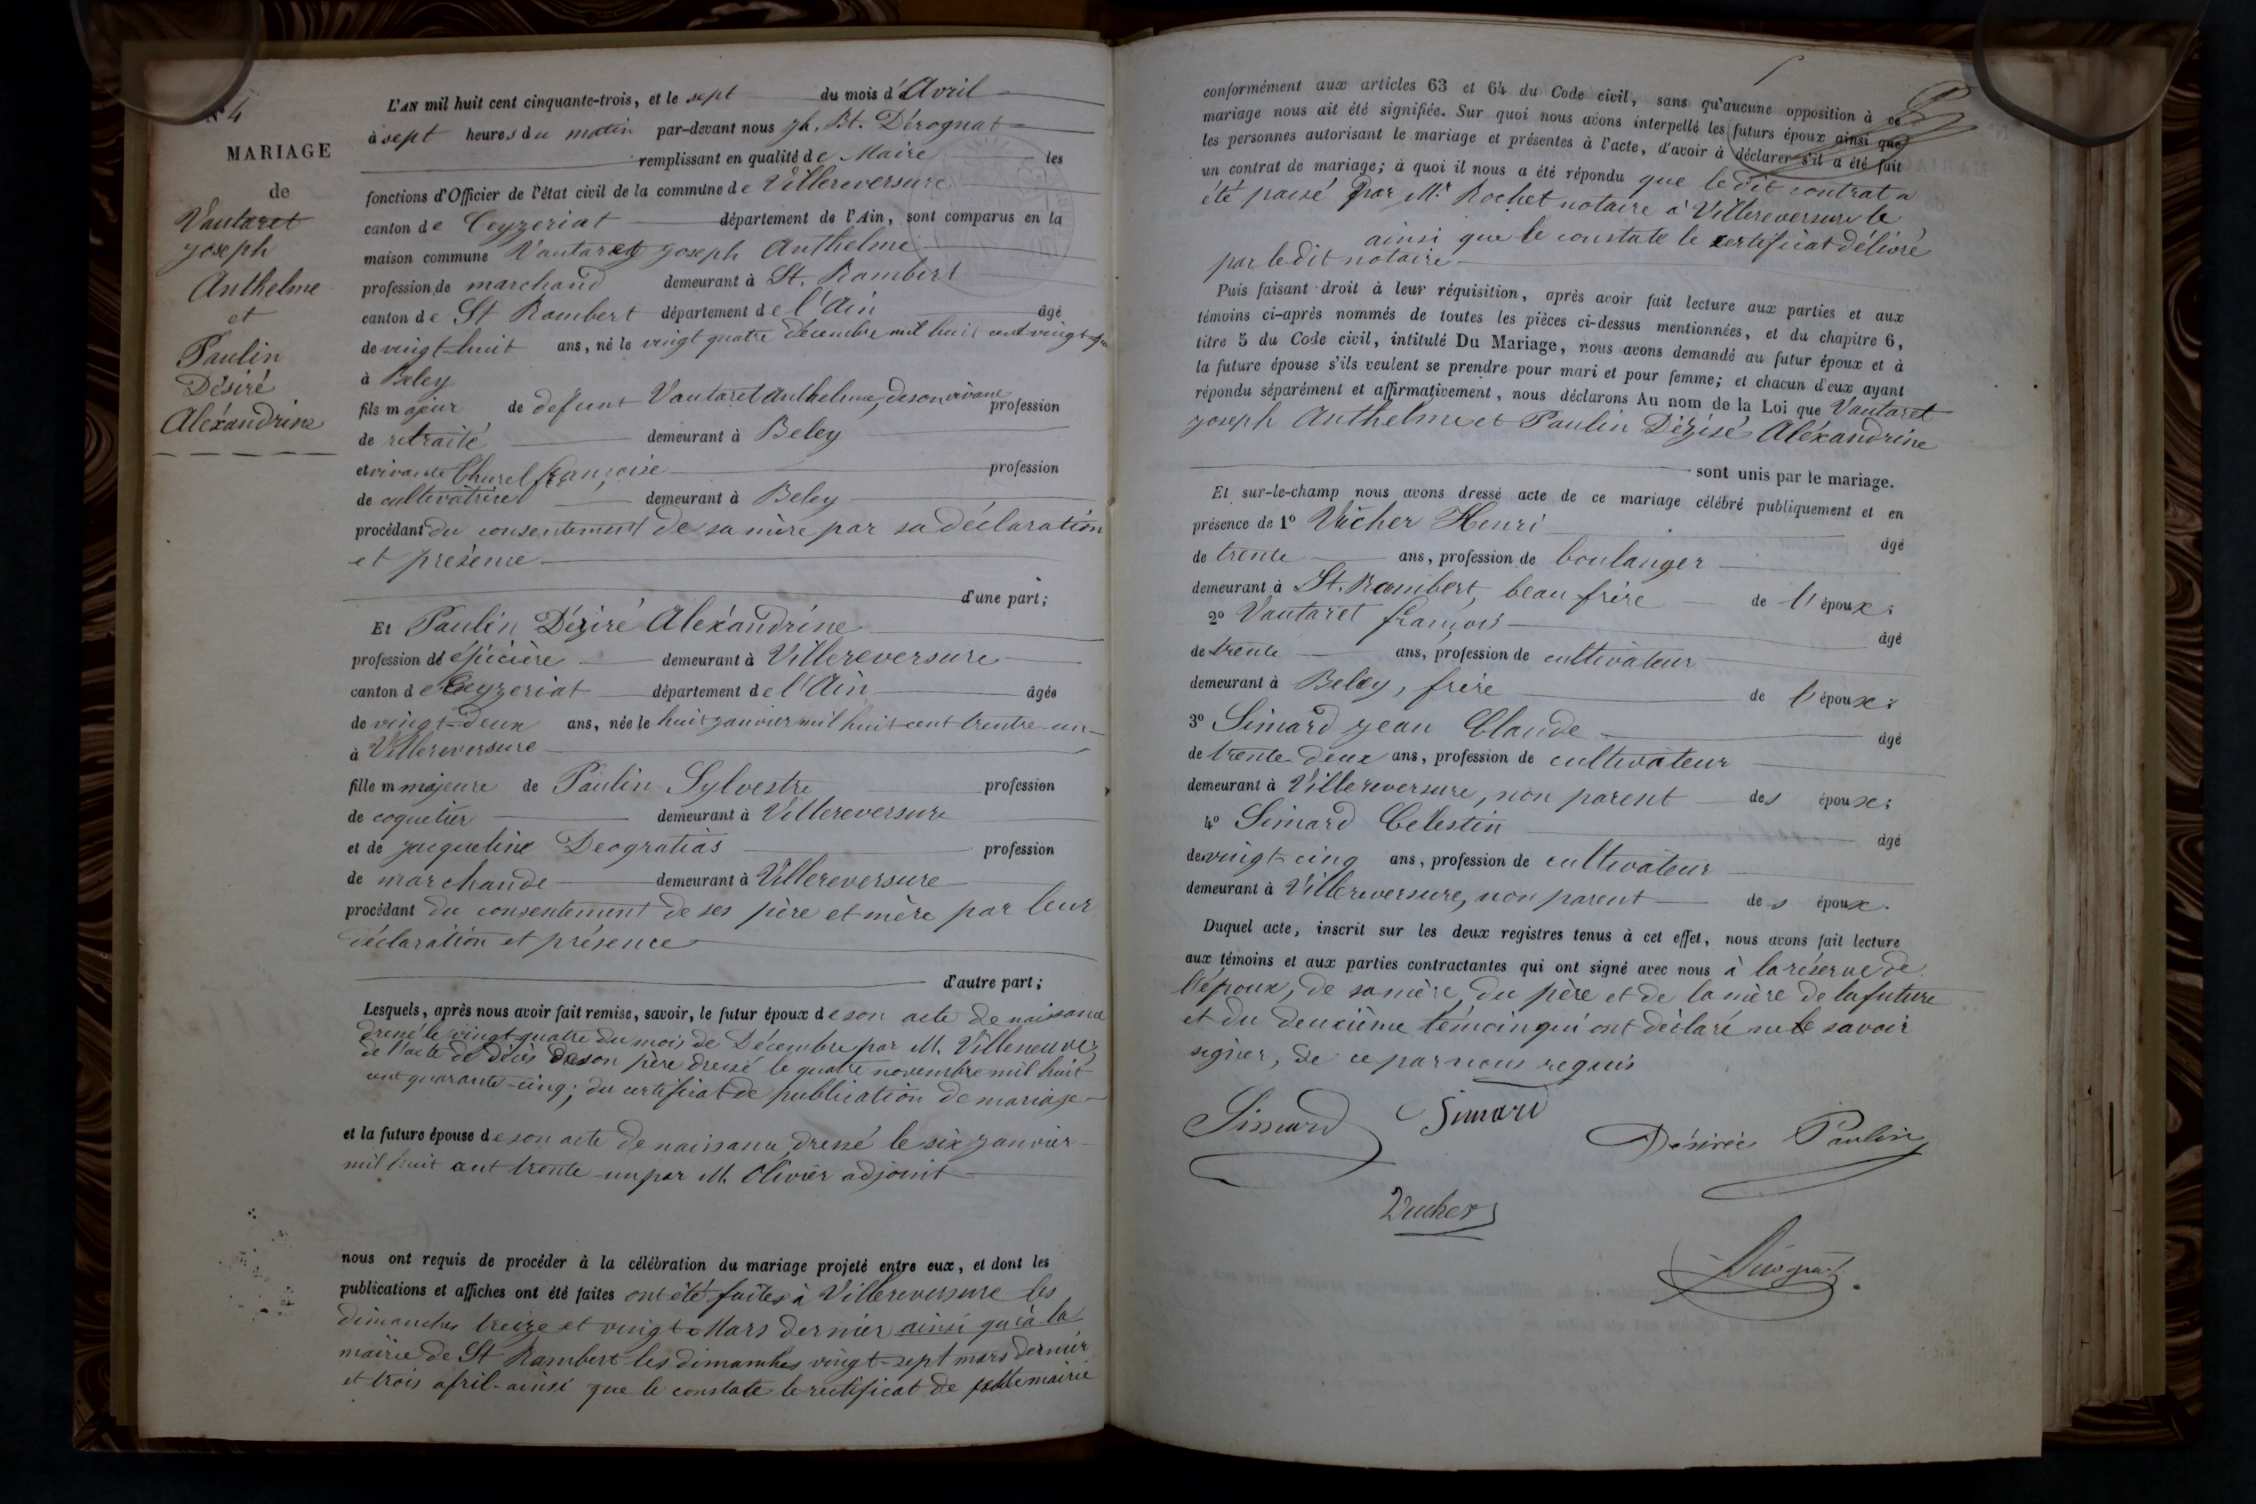 N° 4
MARIAGE
de
Vautaret
Joseph
Anthelme
et
Paulin
Désiré
Aléxandrine
L'AN mil huit cent cinquante-trois, et le sept du mois d'Avril
à sept heures du matin par-devant nous Jh. Bt. Dérognat
remplissant en qualité de Maire les
fonctions d'Officier de l'état civil de la commune de Villereversure
canton de Ceyzeriat département de l'Ain, sont comparus en la
maison commune Vautaret Joseph Anthelme
profession de marchand demeurant à St. Rambert
canton de St Rambert département de l'Ain âgé
de vingt-huit ans, né le vingt quatre décembre mil huit cent vingt
à Beley
fils majeur de défunt Vautaret Anthelme, de son vivant profession
de retraité demeurant à Beley
et vivante Churel françoise profession
de cultivatrice demeurant à Beley
procédant du consentement de sa mère par sa déclaration
et présence
d'une part;
Et Paulin Déziré Aléxandrine
profession de épicière demeurant à Villereversure
canton de Ceyzeriat département de l'Ain âgée
de vingt-deux ans, née le huit janvier mil huit cent trentre-un
à Villereversure
fille m majeure de Paulin Sylvestre profession
de coquetier demeurant à Villereversure
et de Jacqueline Deogratias profession
de marchande demeurant à Villereversure
procédant du consentement de ses père et mère par leur
déclaration et présence
d'autre part;
Lesquels, après nous avoir fait remise, savoir, le futur époux de son acte de naissance
dressé le vingt-quatre du mois de Décembre par M. Villeneuve,
de l'acte de décès de son père dressé le quatre novembre mil huit
cent quarante-cinq; du certificat de publication de mariage
et la future épouse de son acte de naissance dressé le six janvier
mil huit cent trente-un par M. Olivier adjoint
nous ont requis de procéder à la célébration du mariage projeté entre eux, et dont les
publications et affiches ont été faites ont été faites à Villereversure les
dimanches treize et vingt Mars dernier ainsi qu'à la
mairie de St Rambert les dimanches vingt-sept mars dernier
et trois afril ainsi que le constate le certificat de cette mairie
conformément aux articles 63 et 64 du Code civil, sans qu'aucune opposition à ce
mariage nous ait été signifiée. Sur quoi nous avons interpellé les futurs époux ainsi que
les personnes autorisant le mariage et présentes à l'acte, d'avoir à déclarer s'il a été fait
un contrat de mariage; à quoi il nous a été répondu que le dit contrat a
été passé par Mr. Rochet notaire à Villereversure le
ainsi que le constate le certificat délivré
par le dit notaire
Puis faisant droit à leur réquisition, après avoir fait lecture aux parties et aux
témoins ci-après nommés de toutes les pièces ci-dessus mentionnées, et du chapitre 6,
titre 5 du Code civil, intitulé Du Mariage, nous avons demandé au futur époux et à
la future épouse s'ils veulent se prendre pour mari et pour femme; et chacun d'eux ayant
répondu séparément et affirmativement, nous déclarons Au nom de la Loi que Vautaret
Joseph Anthelme et Paulin Déziré Aléxandrine
sont unis par le mariage.
Et sur-le-champ nous avons dressé acte de ce mariage célébré publiquement et en
présence de 1° Vucher Henri âgé
de trente ans, profession de boulanger
demeurant à St. Rambert, beau frère de l'époux;
2° Vautaret françois âgé
de trente ans, profession de cultivateur
demeurant à Beley, frère de l'époux;
3° Simard Jean Claude âgé
de trente deux ans, profession de cultivateur
demeurant à Villereversure, non parent des époux;
4° Simard Célestin âgé
de vingt-cinq ans, profession de cultivateur
demeurant à Villereversure, non parent des époux.
Duquel acte, inscrit sur les deux registres tenus à cet effet, nous avons fait lecture
aux témoins et aux parties contractantes qui ont signé avec nous à la réserve de
l'époux, de sa mère, du père et de la mère de la future
et du deuxième témoin qui ont déclaré ne le savoir
signer, de ce par nous requis
Simard Simard
Désirée Paulin
Vucher
Dérognat